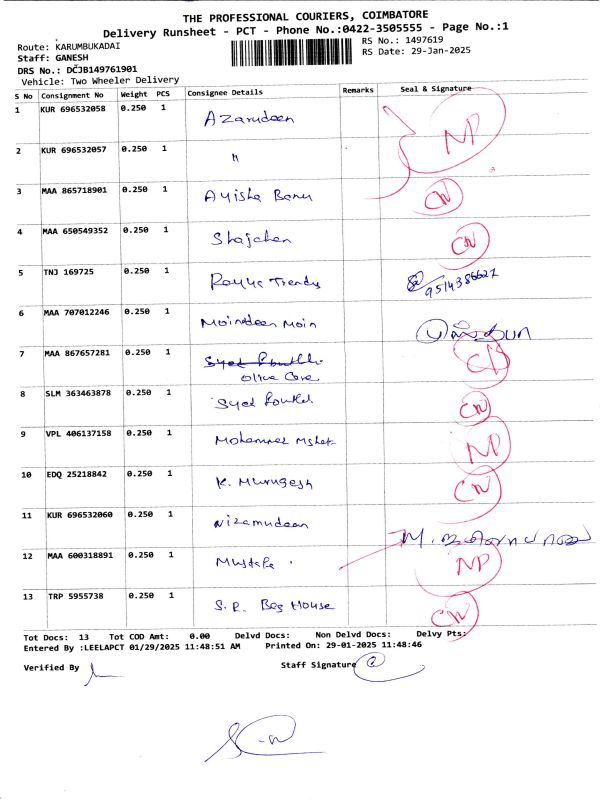 THE PROFESSIONAL COURIERS, COIMBATORE
Delivery Runsheet - PCT - Phone No.:0422-3505555 - Page No.:1
Route: KARUMBUKADAI
RS No.: 1497619
Staff: GANESH
RS Date: 29-Jan-2025
DRS No.: DCJB149761901
Vehicle: Two Wheeler Delivery
S No Consignment No Weight PCS Consignee Details Remarks Seal & Signature
1 KUR 696532058 0.250 1 Azarudeen NP
2 KUR 696532057 0.250 1 "
3 MAA 865718901 0.250 1 Ayisha Banu CN
4 MAA 650549352 0.250 1 Shajahan CN
5 TNJ 169725 0.250 1 Trendy 9514386627
6 MAA 707012246 0.250 1 Moindeen Moin
7 MAA 867657281 0.250 1 CN
Olive Care
8 SLM 363463878 0.250 1 Syed CN
9 VPL 406137158 0.250 1 NP
10 EDQ 25218842 0.250 1 K. Murugesh CN
11 KUR 696532060 0.250 1 Nizamudeen
12 MAA 600318891 0.250 1 Mustafa NP
13 TRP 5955738 0.250 1 S.R. Beg House CN
Tot Docs: 13 Tot COD Amt: 0.00 Delvd Docs: Non Delvd Docs: Delvy Pts:
Entered By :LEELAPCT 01/29/2025 11:48:51 AM Printed On: 29-01-2025 11:48:46
Verified By
Staff Signature